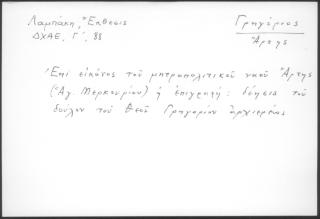 Λαμπάκη, Ἔκθεσις
ΔΧΑΕ, Γ΄, 88
Γρηγόριος
Ἄρτης
Ἐπὶ εἰκόνος τοῦ μητροπολιτικοῦ ναοῦ Ἄρτης
(Ἁγ. Μερκουρίου) ἡ ἐπιγραφή: δέησις τοῦ
δούλου τοῦ Θεοῦ Γρηγορίου ἀρχιερέως